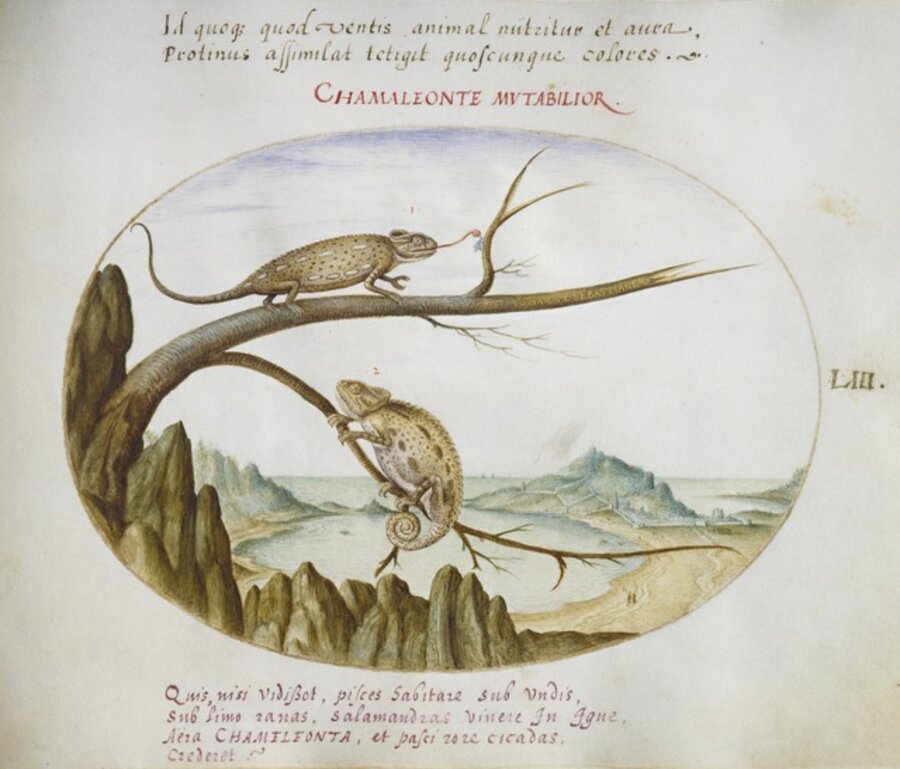 Id quoqȝ quod ventis animal nutritur et aura,
Protinus assimilat tetigit quoscunque colores.
CHAMALEONTE MVTABILIOR.
1
2
LIII.
Quis, nisi vidißet, pisces habitare sub vndis,
Sub limo ranas, salamandras viuere In Igne,
Aera CHAMELEONTA, et pasci rore cicadas,
Crederet